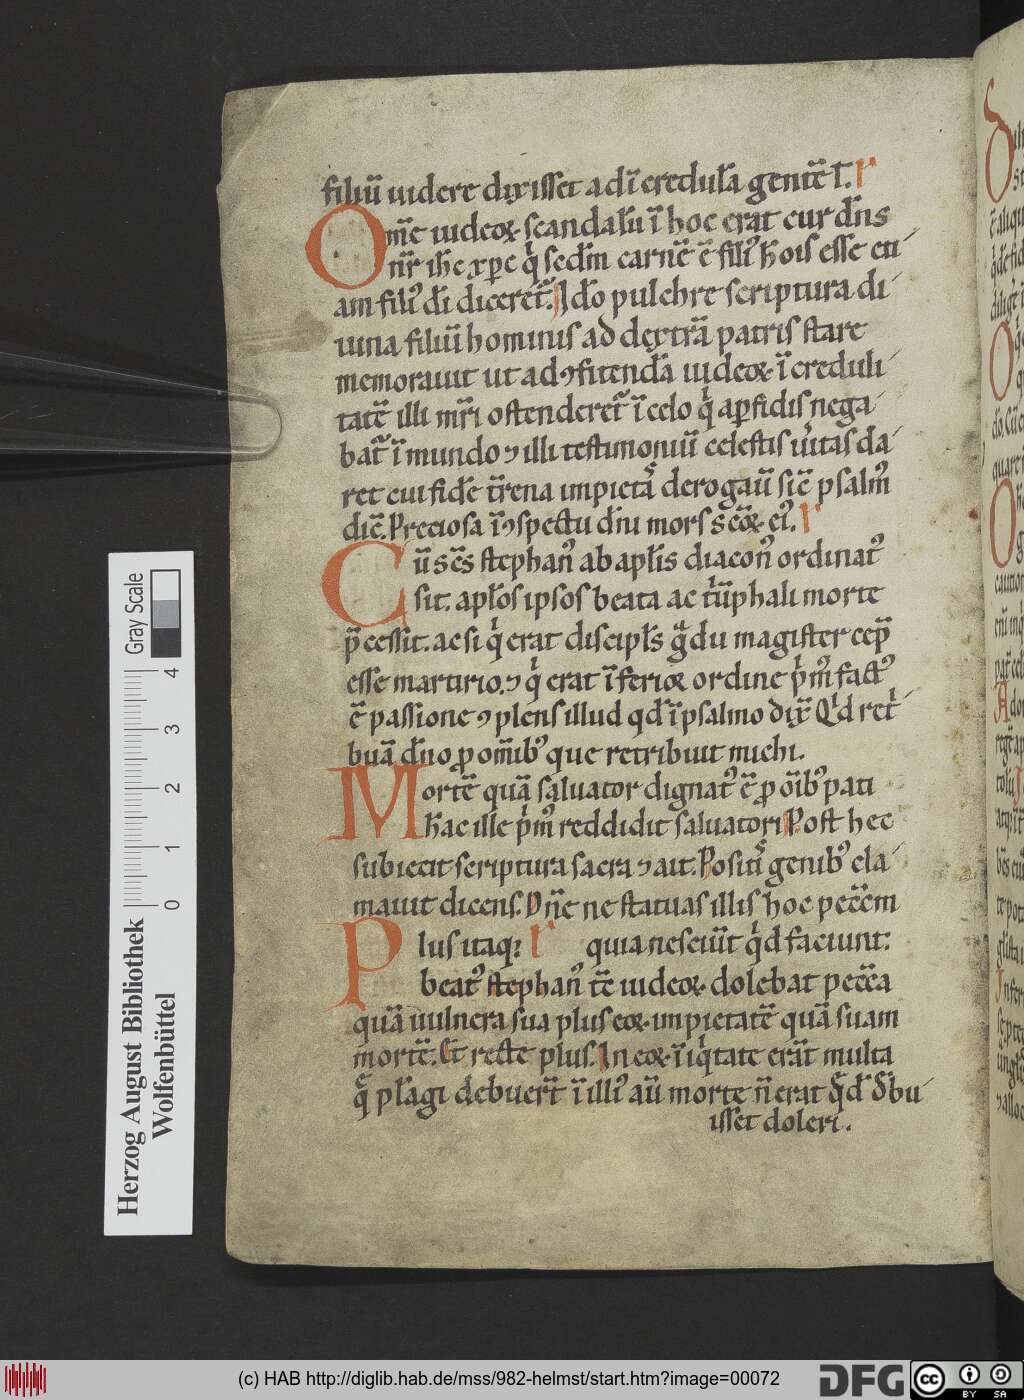 filiū uidere dixisset ad ī credul̄a gentē l̄. r
Om̄e iudeoꝝ scandal̄u ī hoc erat cur dn̄s
nr̄ ih̄c xp̄c q̇ sedm̄ carnē ē fili᾽ hoīs esse eti
am fili᾽ dī dicēret᷑. Id̄o pulchre scriptura di
uina filiū hominis ad dextrā patris stare
memorauit ut ad ꝯfitendā iudeoꝝ ī creduli
tatē illi mr̄i ostenderet᷑ ī celo q̇ a ꝑfidis nega
bat᷑ ī mundo ⁊ illi testimoniū celestis ūitas da
ret cui fidē t̄rena impietas derogaū sic̄ psalm᾽
dic̄. Preciosa ī ꝯspectu dn̄i mors sc̄oꝝ ei᾽. r
Cū sc̄s stephan᾽ ab apl̄is diacon᾽ ordinat᾽
sit. apl̄os ipsos beata ac ṫūphali morte
p̄cessit. ac si q̇ erat discipl̄s g̃du magister cep̄
esse martirio. ⁊ q̇ erat īferior ordine ṗm᾽ fact᾽
ē passione ꝯplens illud qd̄ ī psalmo dix̄ Q̇d reṫ
buā dn̄o ꝓ om̄ib᾽ que retribuit michi.
Mortē quā saluator dignat᾽ ē ꝓ oīb᾽ pati
hāc ille ṗm᾽ reddidit saluatori Post hec
subiecit scriptura sacra ⁊ ait. Positis genib᾽ cla
mauit dicens. Dn̄e ne statuas illis hoc pecc̄m
Plus itaq; r quia nesciūt q̇d faciunt:
beat᾽ stephan᾽ tc̄ iudeoꝝ dolebat pecc̄a
quā uulnera sua plus eoꝝ impietatē quā suam
mortē. Et recte plus. In eoꝝ ī iq̇tate erāt multa
q̄ pl̄agi debuer̄t ī illi᾽ aū morte n̄ erat q̇d d̄bu
isset doleri.
Gray Scale
0 1 2 3 4
Herzog August Bibliothek
Wolfenbüttel
(c) HAB http://diglib.hab.de/mss/982-helmst/start.htm?image=00072
DFG
cc
BY SA